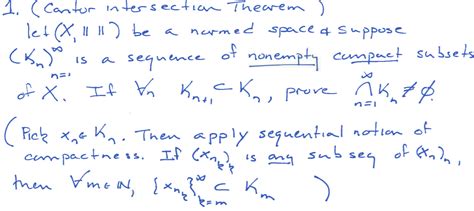 1. (Cantor intersection Theorem)
let (X, ‖ ‖) be a normed space & suppose
(Kₙ)ₙ₌₁^∞ is a sequence of nonempty compact subsets
of X. If ∀n Kₙ₊₁ ⊂ Kₙ, prove ∩ₙ₌₁^∞ Kₙ ≠ ∅.
(Pick xₙ ∈ Kₙ. Then apply sequential notion of
compactness. If (xₙₖ)ₖ is any subseq of (xₙ)ₙ,
then ∀m∈ℕ, {xₙₖ}ₖ₌ₘ^∞ ⊂ Kₘ )